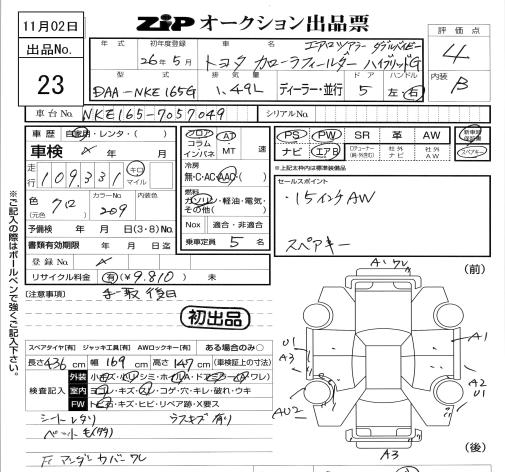 11月02日
出品No.
23
ZiP オークション出品票
評価点
4
内装
B
年式 初年度登録 車名
26年5月
エアロツアラー ダブルバイビー
トヨタ カローラフィールダー ハイブリッドG
型式 排気量 ディーラー・並行 ドア ハンドル
DAA-NKE165G 1.49L 5 左・右
車台No. NKE165-7057049 シリアルNo.
車歴 自家用・レンタ・( )
車検 年 月
走行 109,331 キロ マイル
色 クロ (元色) カラーNo. 209 内装色
予備検 年 月 日(3・8)No.
書類有効期限 年 月 日迄
登録No.
リサイクル料金 有(¥9,810) 未
フロア コラム インパネ AT MT 速
冷房
無・C・AC・AAC・( )
燃料
ガソリン・軽油・電気・その他( )
Nox 適合・非適合
乗車定員 5 名
PS PW SR 革 AW 新車時保証書
ナビ エアB 社外ナビ 社外AW スペアキー
※上記太枠内は標準装備品
セールスポイント
・15インチAW
スペアキー
[注意事項]
初出品
スペアタイヤ[有] ジャッキ工具[有] AWロックキー[有] ある場合のみ○
長さ436cm 幅169cm 高さ147cm (車検証上の寸法)
検査記入
外装
室内
FW
シートスレタリ
(前)
(後)
U1
A3
AU2
A1
A2
U1
A3
※ご記入の際はボールペンで強くご記入下さい。